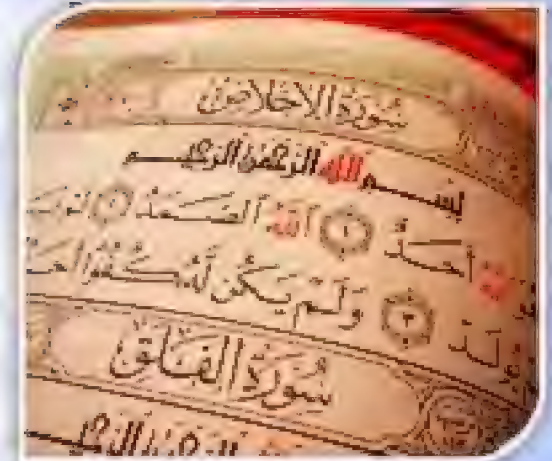 سُورَةُ الإِخْلَاصِ
بِسْمِ اللَّهِ الرَّحْمَٰنِ الرَّحِيمِ
أَحَدٌ ١ اللَّهُ الصَّمَدُ ٢
يُولَدْ ٣ وَلَمْ يَكُن لَّهُ كُفُوًا
سُورَةُ الْفَلَقِ
الرَّحْمَٰنِ